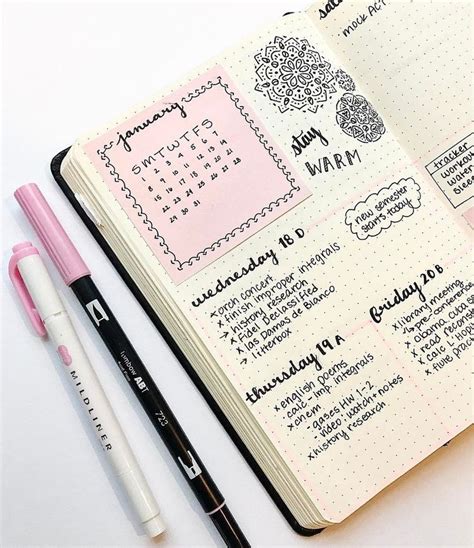 january
SMTWTFS
1 2 3 4 5 6 7
8 9 10 11 12 13 14
15 16 17 18 19 20 21
22 23 24 25 26 27 28
29 30 31
stay
WARM
new semester
starts today
wednesday 18 D
x orch concert
x finish improper integrals
→ history research
x Fidel Declassified
x las Damas de Blanco
→ litterbox
thursday 19 A
x english poems
calc - imp integrals
x chem
- gases HW 1-2
- video: watch + notes
x history research
friday 20 B
x library meeting
mock ACT
tracker
water
MILDLINER
Tombow ABT
723